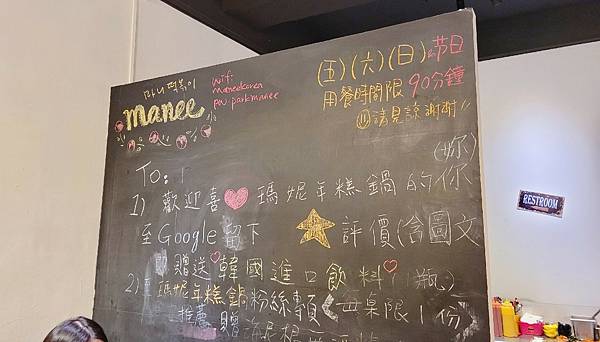 마니 떡볶이
manee
wifi
maneekorea
pw: parkmanee
(五)(六)(日)&節日
用餐時間限90分鐘
請見諒謝謝!!
To:
(妳)
1) 歡迎喜♥瑪妮年糕鍋的你
至Google留下★評價(含圖文
即贈送♡韓國進口飲料(1瓶)
2) 至瑪妮年糕鍋粉絲專頁《每桌限1份》
推薦 贈
RESTROOM